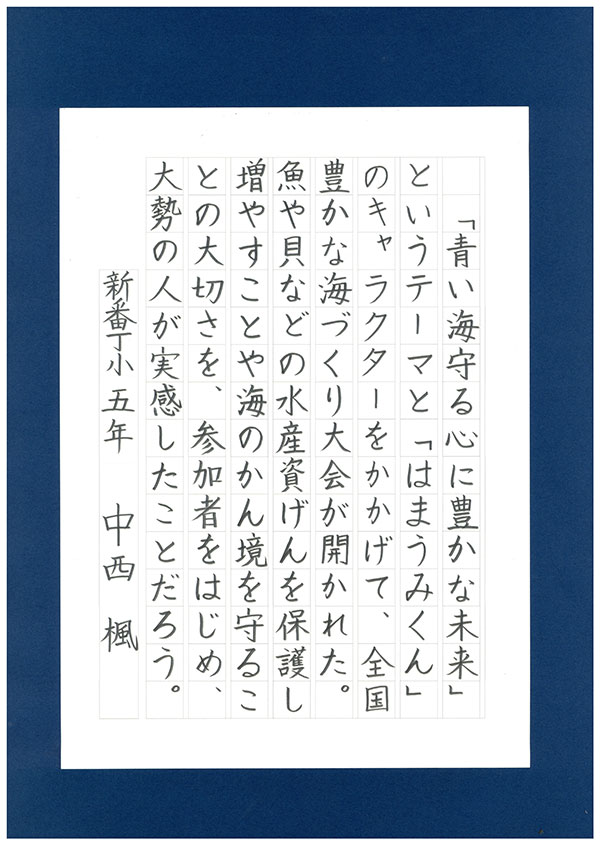 「青い海守る心に豊かな未来」
というテーマと「はまうみくん」
のキャラクターをかかげて、全国
豊かな海づくり大会が開かれた。
魚や貝などの水産資げんを保護し
増やすことや海のかん境を守るこ
との大切さを、参加者をはじめ、
大勢の人が実感したことだろう。
新番丁小五年 中西楓